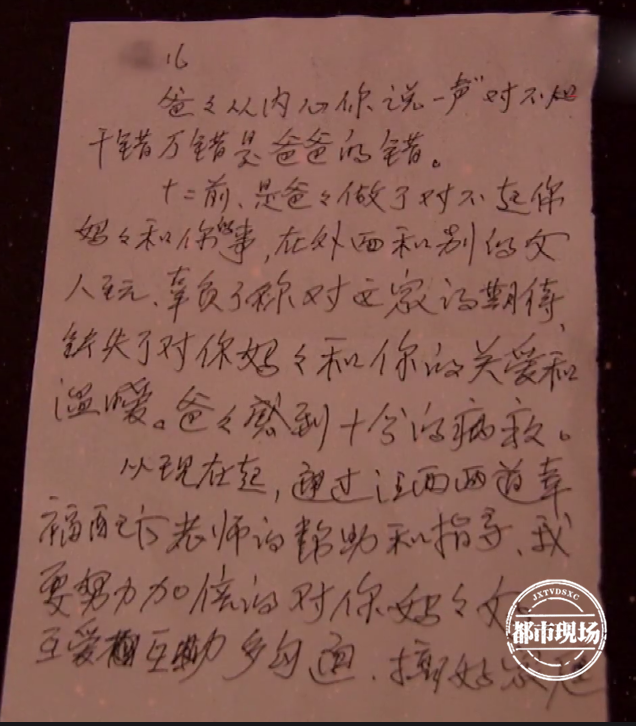 儿
爸々从内心你说一声“对不起
千错万错是爸爸的错。
十二前、是爸々做了对不起你
妈々和你的事,在外面和别的女
人玩、辜负了你对这家的期待,
缺失了对你妈々和你的关爱和
温暖。爸々感到十分的病疚。
从现在起,通过江西两道幸
福 老师的帮助和指导、我
要努力加倍的对你妈々
互爱相互助多沟通、搞好家庭
JXTVDSXC
都市现场